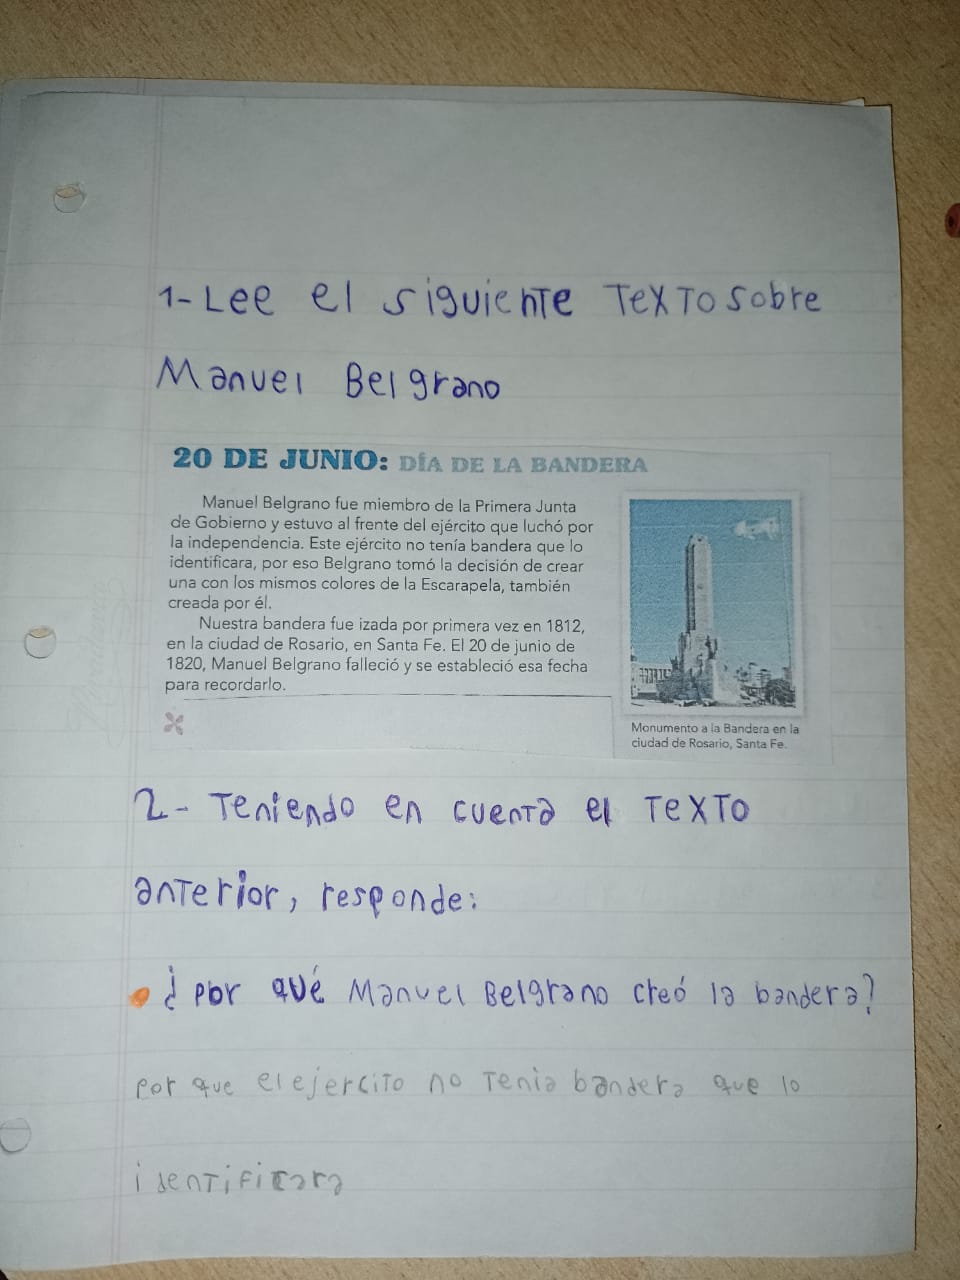 1-Lee el siguiente Texto sobre
Manuel Belgrano
20 DE JUNIO: DÍA DE LA BANDERA
Manuel Belgrano fue miembro de la Primera Junta
de Gobierno y estuvo al frente del ejército que luchó por
la independencia. Este ejército no tenía bandera que lo
identificara, por eso Belgrano tomó la decisión de crear
una con los mismos colores de la Escarapela, también
creada por él.
Nuestra bandera fue izada por primera vez en 1812,
en la ciudad de Rosario, en Santa Fe. El 20 de junio de
1820, Manuel Belgrano falleció y se estableció esa fecha
para recordarlo.
Monumento a la Bandera en la
ciudad de Rosario, Santa Fe.
2- Teniendo en cuenta el Texto
anterior, responde:
¿por qué Manuel Belgrano creó la bandera?
por que el ejercito no tenia bandera que lo
identificara